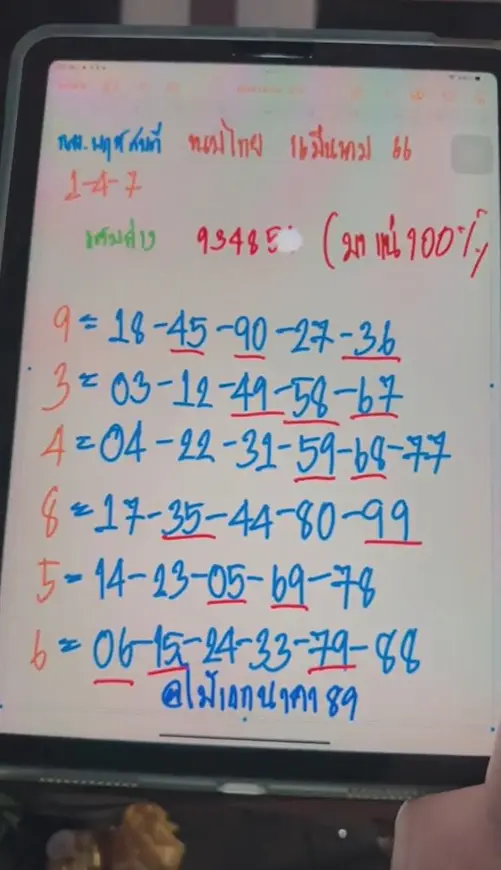 พฤหัสบดี หวยไทย 16 มีนาคม 66
1-4-7
93485 (มา แน่ 100%)
9 = 18-45-90-27-36
3 = 03-12-49-58-67
4 = 04-22-31-59-68-77
8 = 17-35-44-80-99
5 = 14-23-05-69-78
6 = 06-15-24-33-79-88
@ไม้เอกนาคา 89